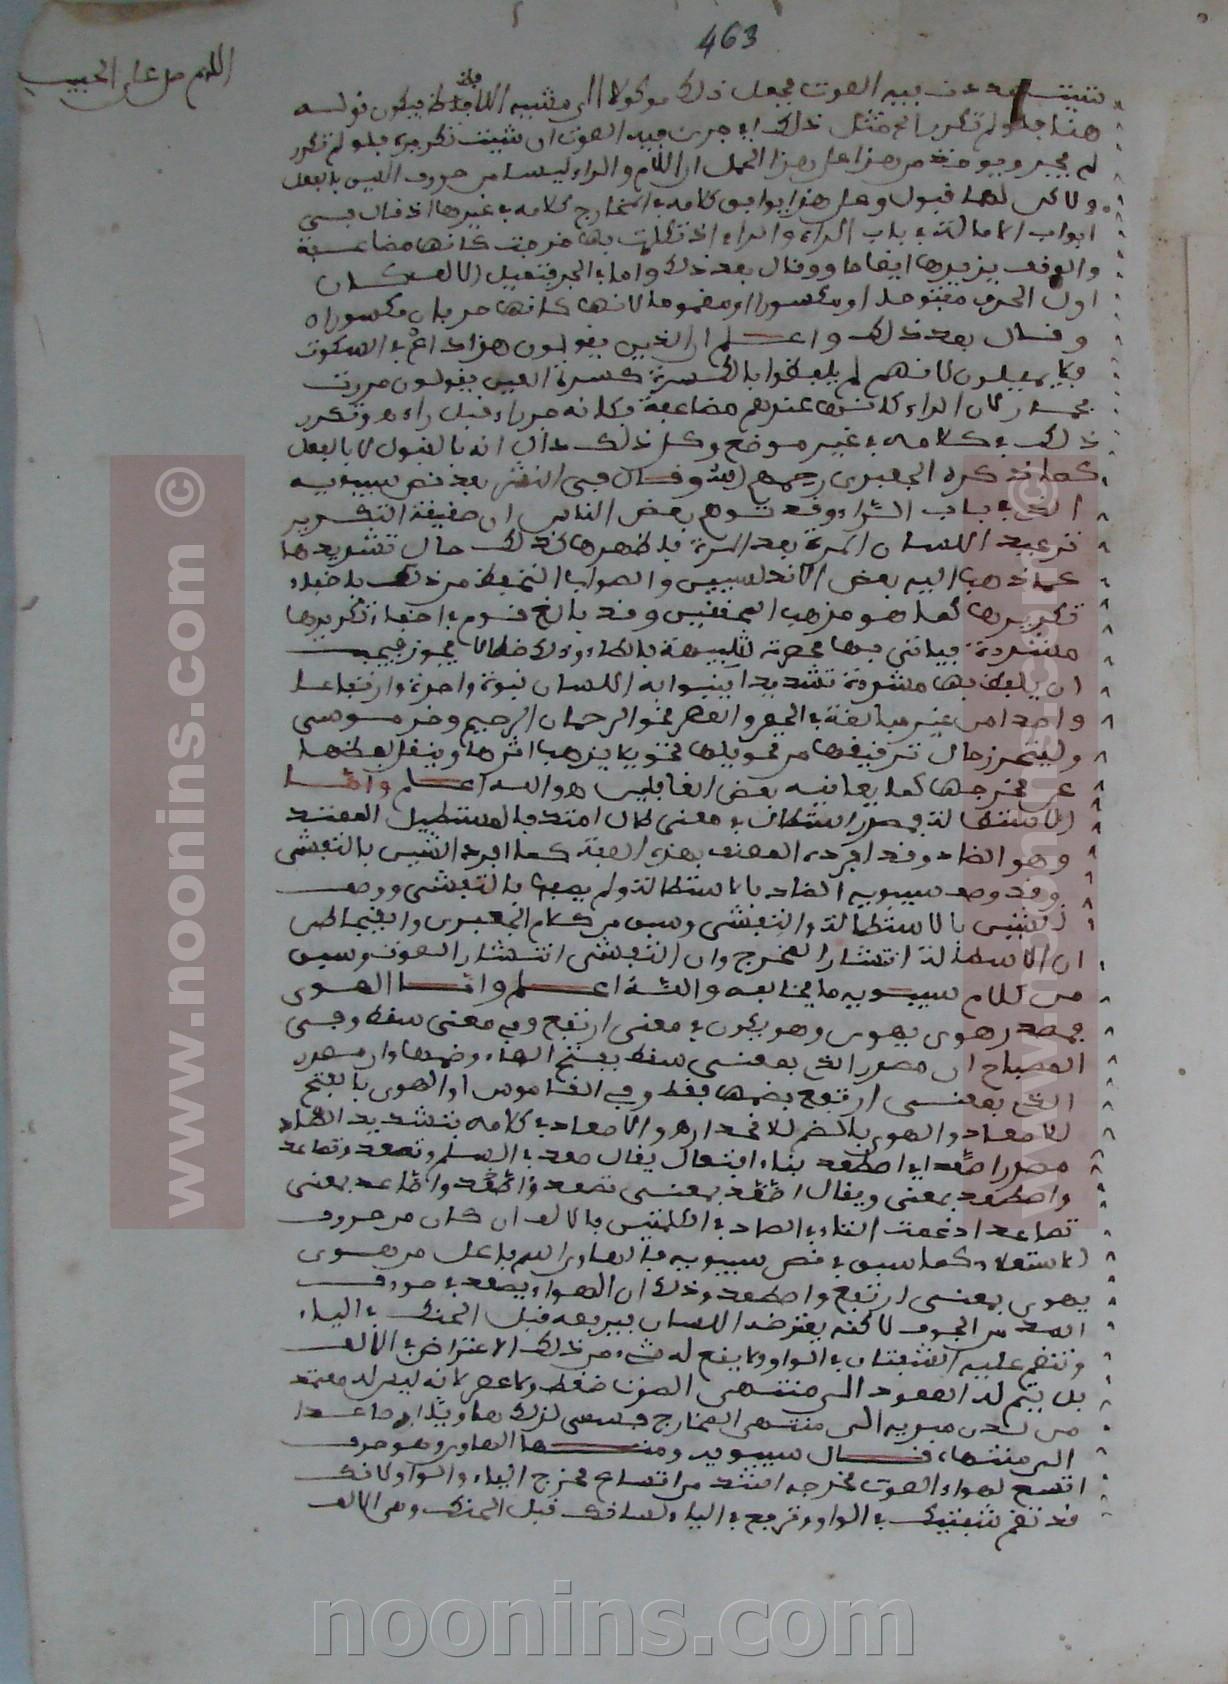 463
اللهم صل على الحبيب
هنا فلو لم تكرر الخ مثل ذلك اي جرت فيه الصوت ان شئت تكريره فلو لم تكرر
لم يجر ويوخذ من هذا على هذا الحمل ان اللام والراء ليسا من حروف اللين بالفعل
ولاكن لهما قبول وعلى هذا يوافق كلامه في المخارج كلامه في غيرها اذ قال في
ابواب الامالة في باب الراء والراء اذا تكلمت بها خرجت كانها مضاعفة
والوقف يزيدها ايضاحا وقال بعد ذلك واما في الجر فتميل الالف كان
اول الحرف مفتوحا او مكسورا او مضموما لانها كانها حرفان مكسوران
وقال بعد ذلك واعلم ان الذين يقولون هذا داع في السكوت
فلا يميلون لانهم لم يلفظوا بالكسرة كسرة العين يقولون مررت
بحمار لان الراء كانها عندهم مضاعفة فكانه جر راء قبل راء وتكرر
ذلك في كلامه في غير موضع وكل ذلك دال انه بالقبول لا بالفعل
كما ذكره الجعبري رحمهم الله وقال في النشر بعد نص سيبويه
الذي في باب الراء وقد توهم بعض الناس ان حقيقة التكرير
ترعيد اللسان المرة بعد المرة فاظهرها كذلك حال تشديدها
كما ذهب اليه بعض الاندلسيين والصواب التحفظ من ذلك باخفاء
تكريرها كما هو مذهب المحققين وقد بالغ قوم في اخفاء تكريرها
مشددة فياتي بها محصرمة شبيهة بالطاء وذلك خطا لا يجوز فيجب
ان يلفظ بها مشددة تشديدا ينبوا به اللسان نبوة واحدة وارتفاعا
واحدا من غير مبالغة في الحصر والعصر نحو الرحمان الرحيم وخر موسى
وليتحرز حال ترقيقها من نحولها نحولا يذهب اثرها وينقل لفظها
عن مخرجها كما يعانيه بعض الغافلين هو والله اعلم واما
الاستطالة فمصدر استطال في معنى طال امتد فالمستطيل الممتد
وهو الضاد وقد افرده المصنف بهذه الصفة كما افرد الشين بالتفشي
وقد وصف سيبويه الضاد بالاستطالة ولم يصفها بالتفشي ووصف
الشين بالاستطالة والتفشي وسبق من كلام الجعبري والقيجاطي
ان الاستطالة انتشار المخرج وان التفشي انتشار الصوت وسبق
من كلام سيبويه ما يخالفه والله اعلم واما الهوي
فمصدر هوى يهوي وهو يكون في معنى ارتفع وفي معنى سقط وفي
المصباح ان مصدر الذي بمعنى سقط بفتح الهاء وضمها وان مصدر
الذي بمعنى ارتفع بضمها فقط وفي القاموس ان الهوي بالفتح
للاصعاد والهوي بالضم للانحدار هو والاصعاد في كلامه بتشديد الصاد
مصدر اصّعد اي اصطعد بناء افتعال يقال صعد في السلم وتصعد وتصاعد
واصطعد بمعنى ويقال اصّعّد بمعنى تصعد واصّعّد واصّاعد بمعنى
تصاعد ادغمت التاء في الصاد في الكلمتين بالالف ان كان من حروف
الاستعلاء كما سبق في نص سيبويه فالهاوي اسم فاعل من هوى
يهوي بمعنى ارتفع واصطعد وذلك ان الهواء يصعد في حروف
المد من الجوف لاكنه يعترضه اللسان فيرفعه قبل الحنك في الياء
وتنضم عليه الشفتان في الواو ولا يقع له شيء من ذلك الاعتراض في الالف
بل يتم له الصعود الى منتهى الصوت ضغط ولا عصر لانه ليس له معتمد
من لدن مبديه الى منتهى المخارج فسمي لذلك هاويا اي صاعدا
الى منتهاه قال سيبويه ومنها الهاوي وهو حرف
اتسع لهواء الصوت مخرجه اشد من اتساع مخرج الياء والواو لانك
قد تضم شفتيك في الواو وترفع في الياء لسانك قبل الحنك وهي الالف
www.noonins.com ©
www.noonins.com ©
noonins.com